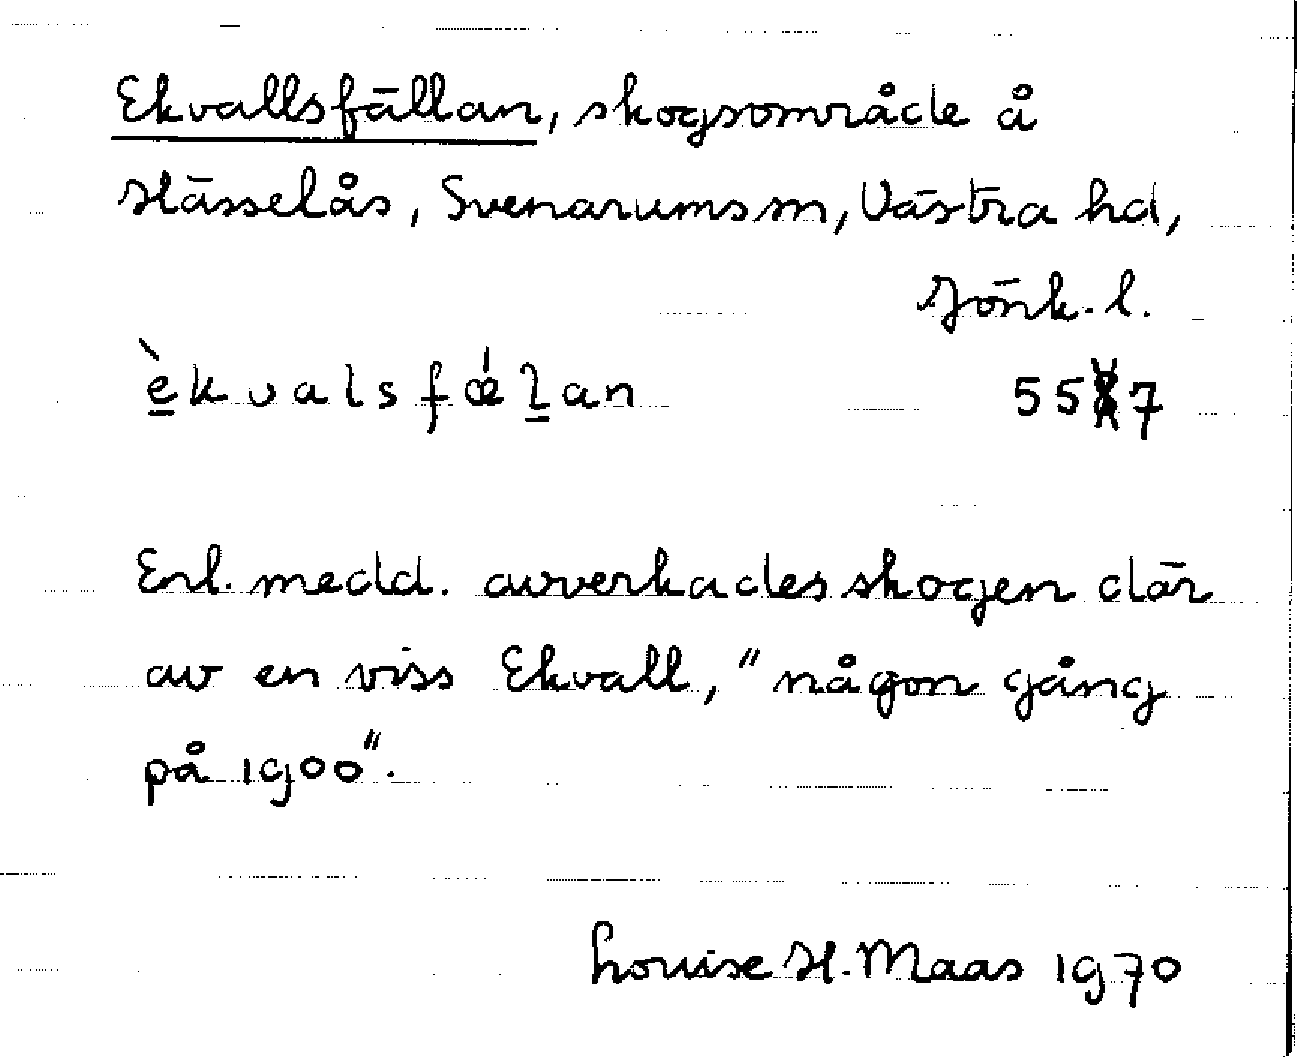 Ekvallsfällan, skogsområde å
Hässelås, Svenarums sn, Västra hd,
Jönk. l.
è̱kvalsfǽḻan 557
Enl. medd. avverkades skogen där
av en viss Ekvall, "någon gång
på 1900".
Louise H. Maas 1970